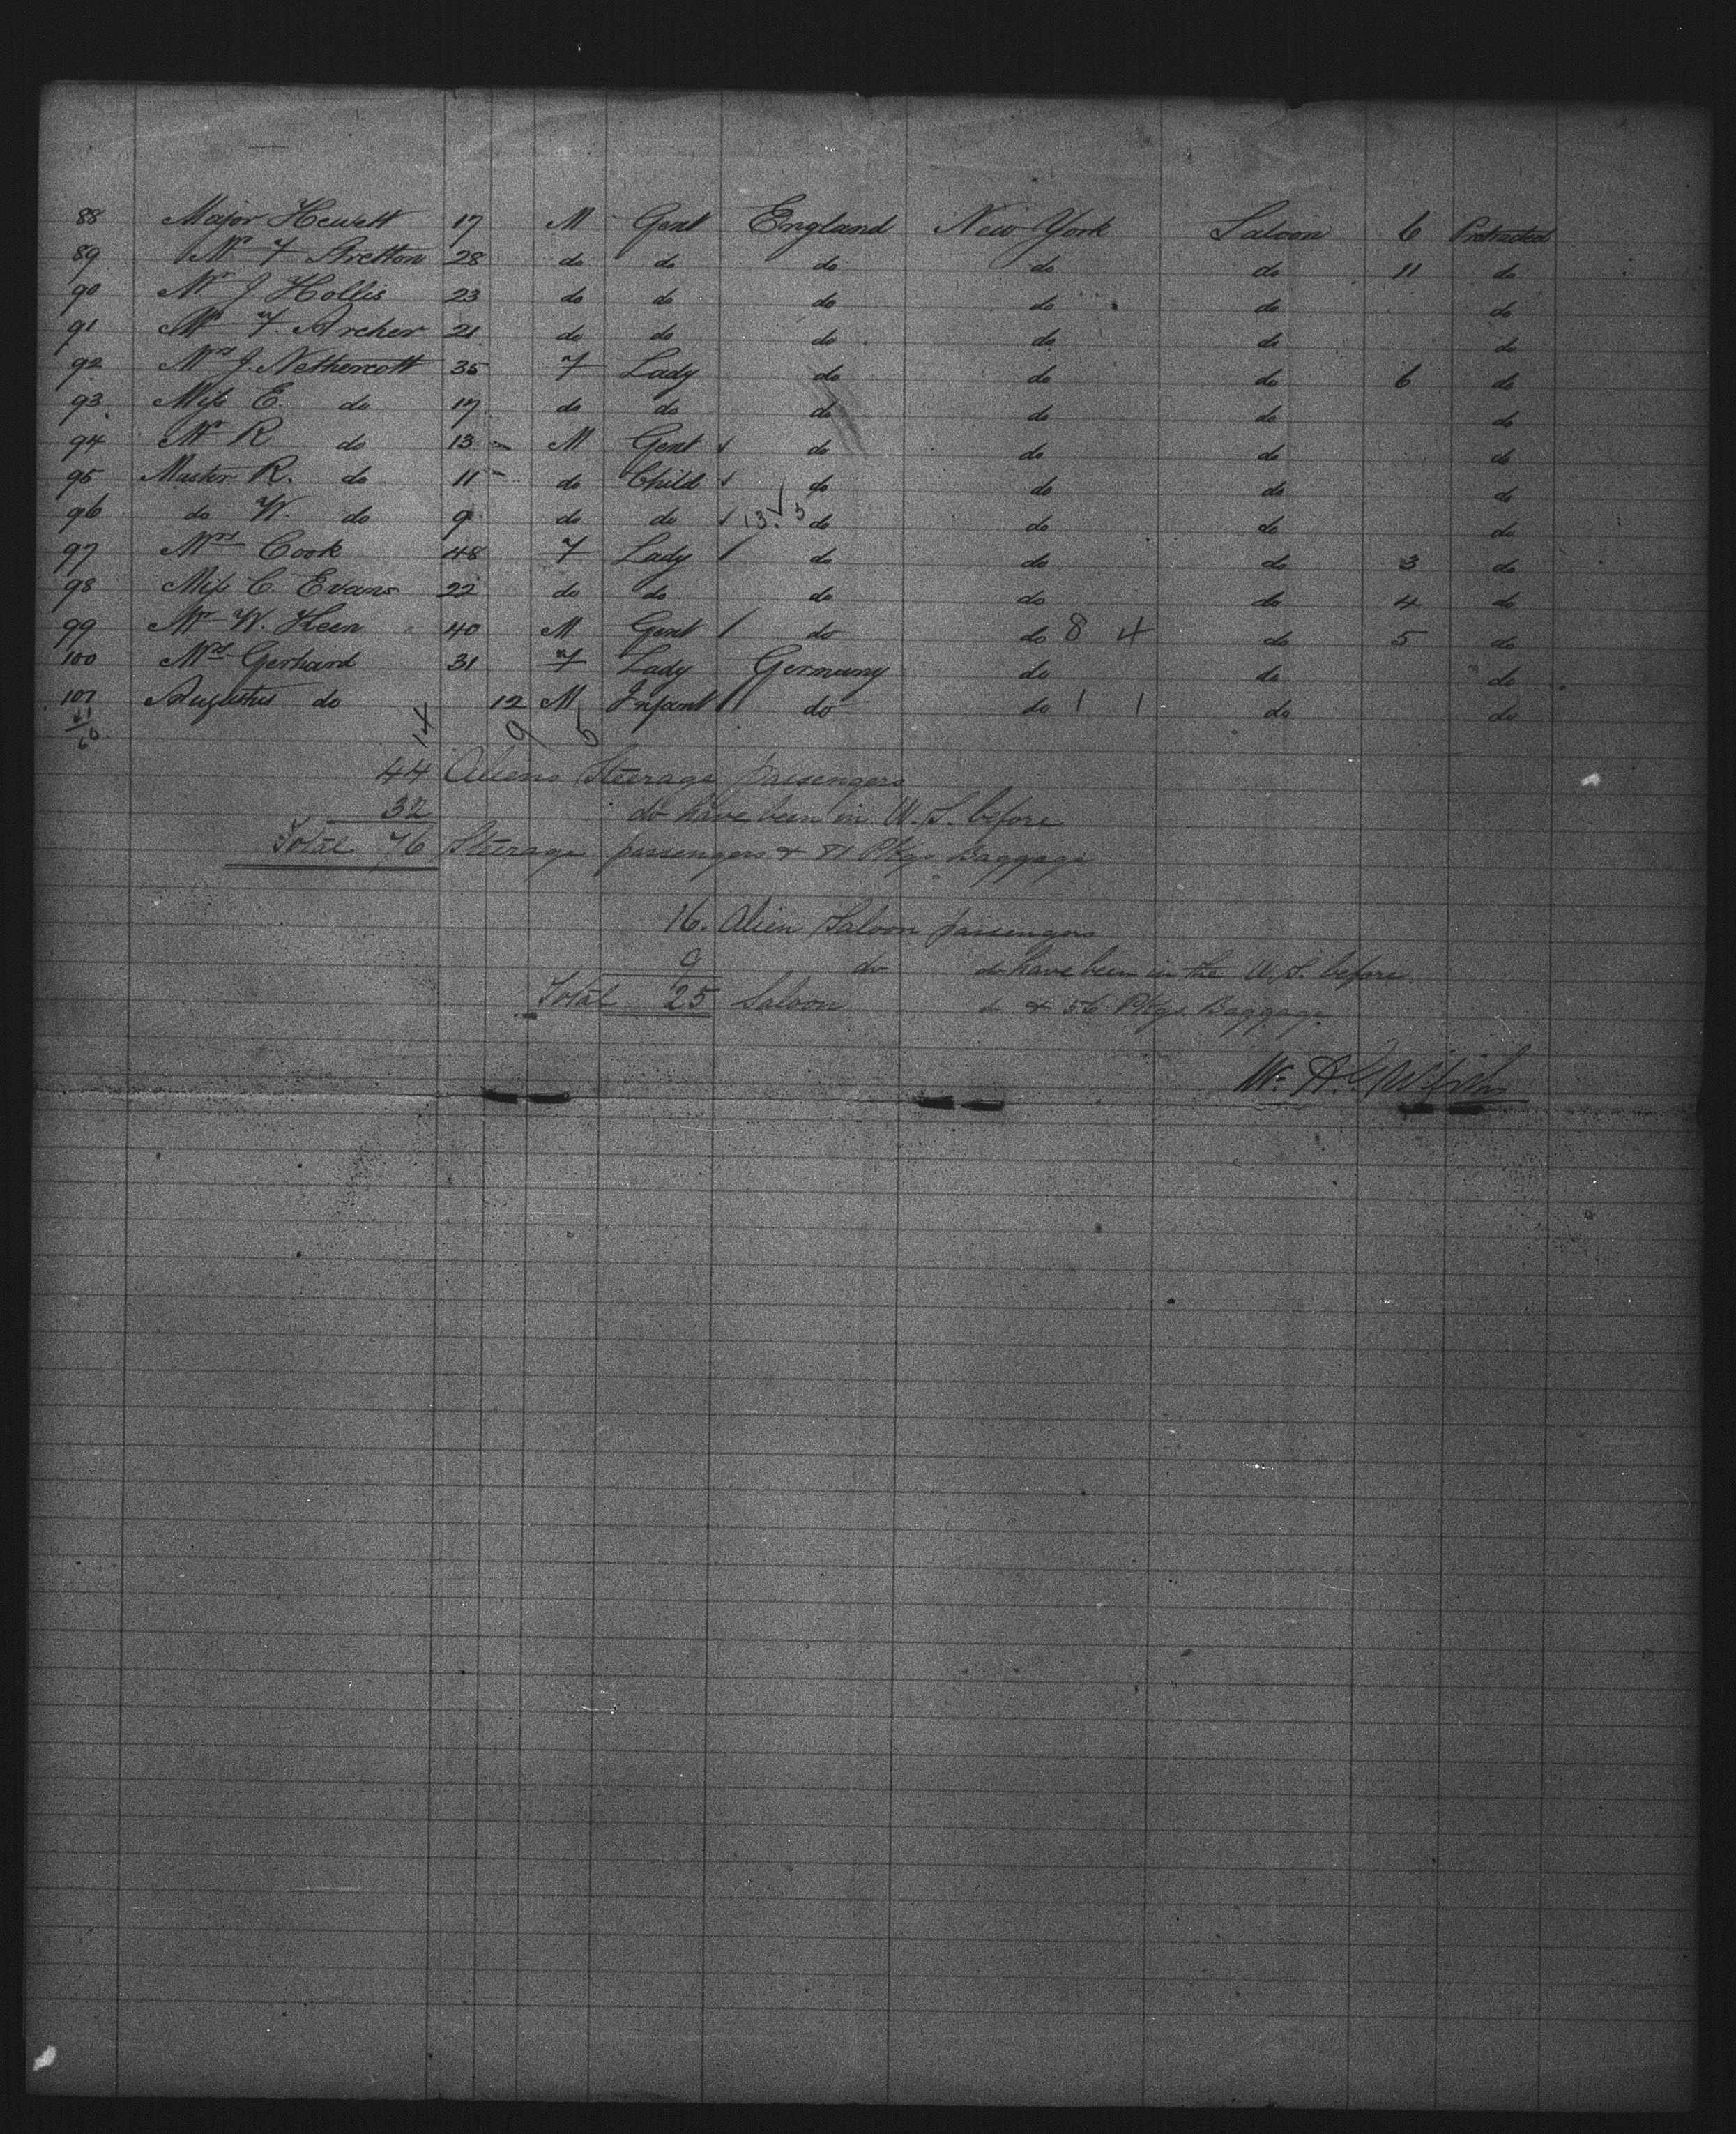 88 Major Hewett 17 M Gent England New York Saloon 6 Protracted
89 Mr F Stretton 28 do do do do do 11 do
90 Mr J. Hollis 23 do do do do do do
91 Mr F. Archer 21 do do do do do do
92 Mrs J. Nethercott 35 F Lady do do do 6 do
93 Miss E. do 17 do do do do do do
94 Mr R do 13 M Gent do do do do
95 Master R. do 11 do Child do do do do
96 do W. do 9 do do 13 5 do do do do
97 Mrs Cook 48 F Lady do do do 3 do
98 Miss C. Evans 22 do do do do do 4 do
99 Mr W. Keen 40 M Gent do do 8 4 do 5 do
100 Mrs Gerhard 31 F Lady Germany do do do
101 Augustus do 12 M Infant do do 1 1 do do
41
60
14 9 5
44 Aliens Steerage passengers
32 do have been in U.S. before
Total 76 Steerage passengers & 81 Pkgs Baggage
16. Alien Saloon passengers
9 do do have been in the U.S. before
Total 25 Saloon do & 56 Pkgs Baggage